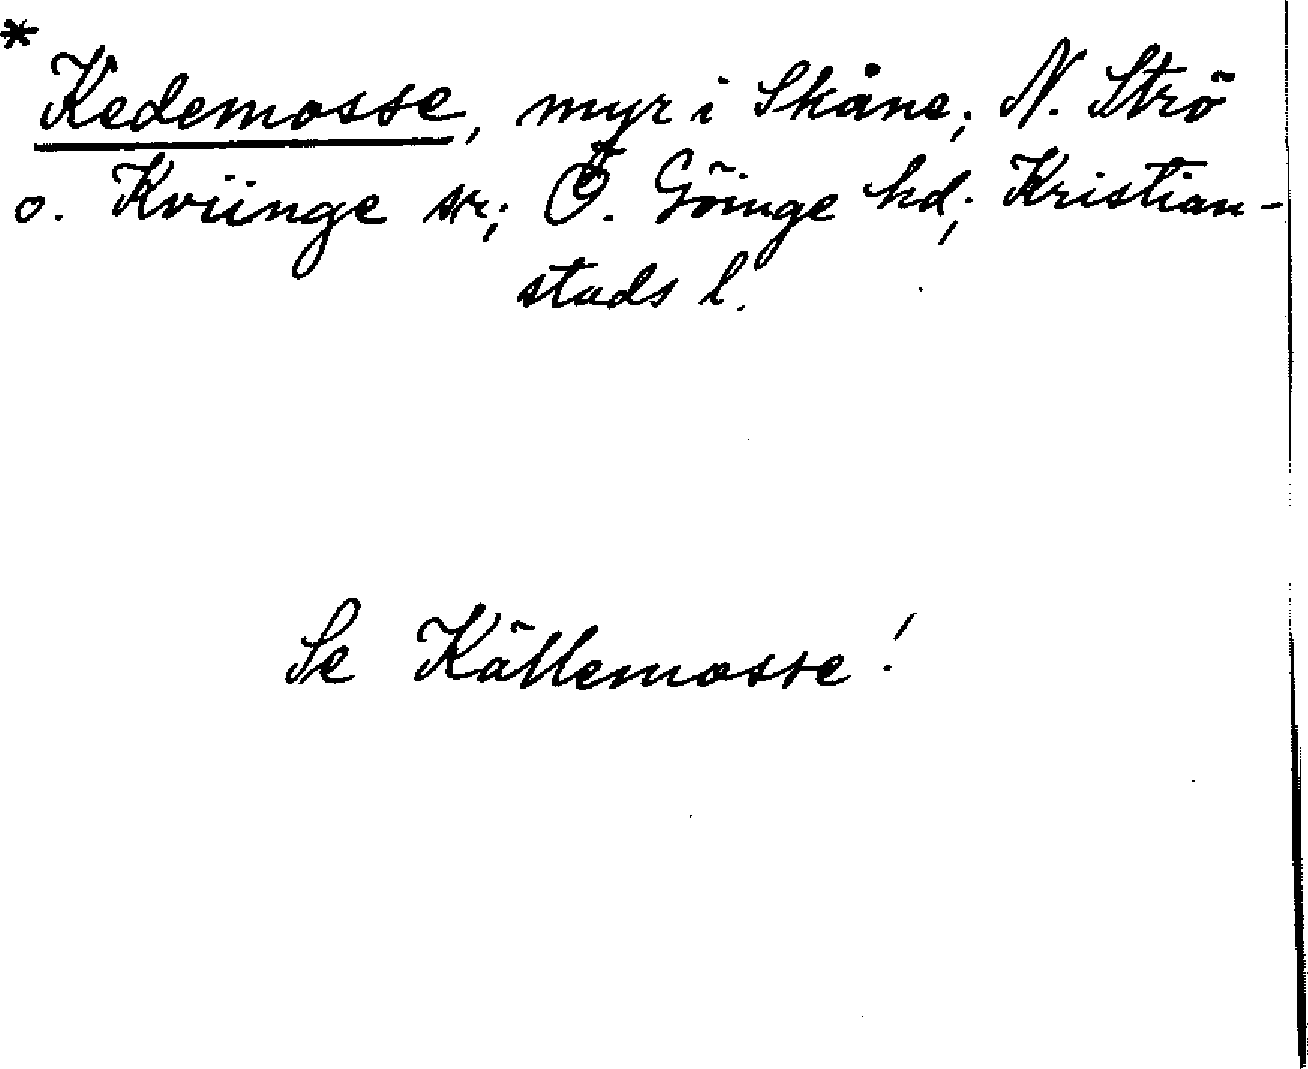 *
Kedemosse, myr i Skåne; N. Strö
o. Kviinge sr; Ö. Göinge hd; Kristian-
stads l.
Se Källemosse!